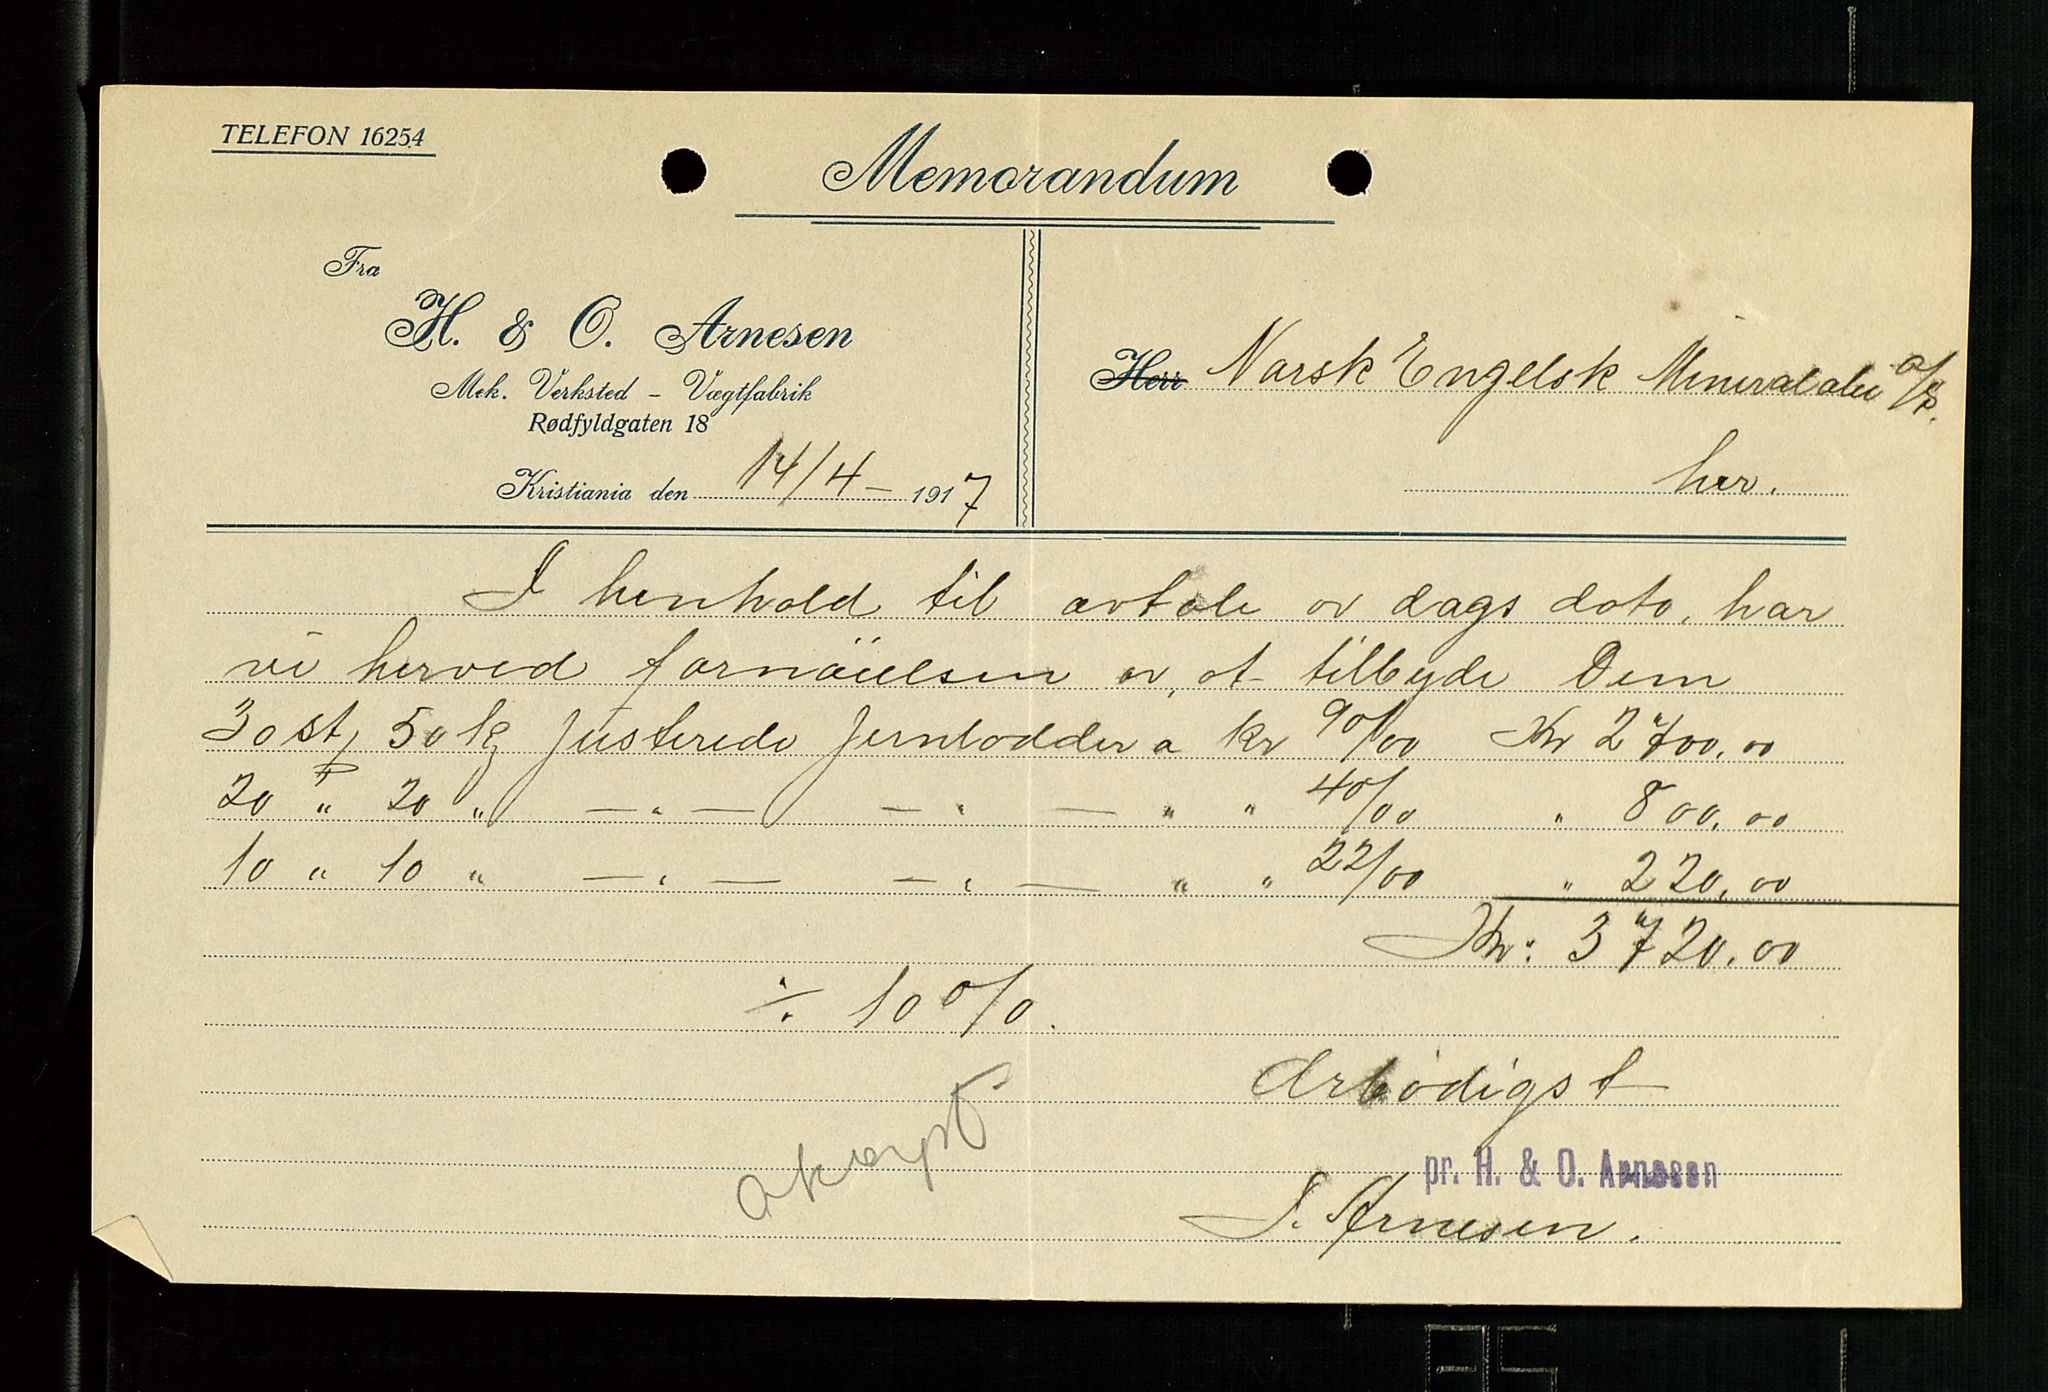 TELEFON 16254
Memorandum
Fra
H. & O. Arnesen
Mek. Verksted - Vægtfabrik
Rødfyldgaten 18
Kristiania den 14/4- 1917
Herr Norsk Engelsk Mineralolie A/S.
her.
I henhold til avtale av dags dato, har
vi herved fornöielsen av, at tilbyde Dem
30 st 50 kg Justerede Jernlodder a kr 90/00 Kr 2700,00
20 " 20 " — " — — " — " " 40/00 " 800,00
10 " 10 " — " — — " — " " 22/00 " 220,00
Kr: 3720,00
÷ 10 %.
Ærbødigst
akcept
pr. H. & O. Arnesen
S. Arnesen.